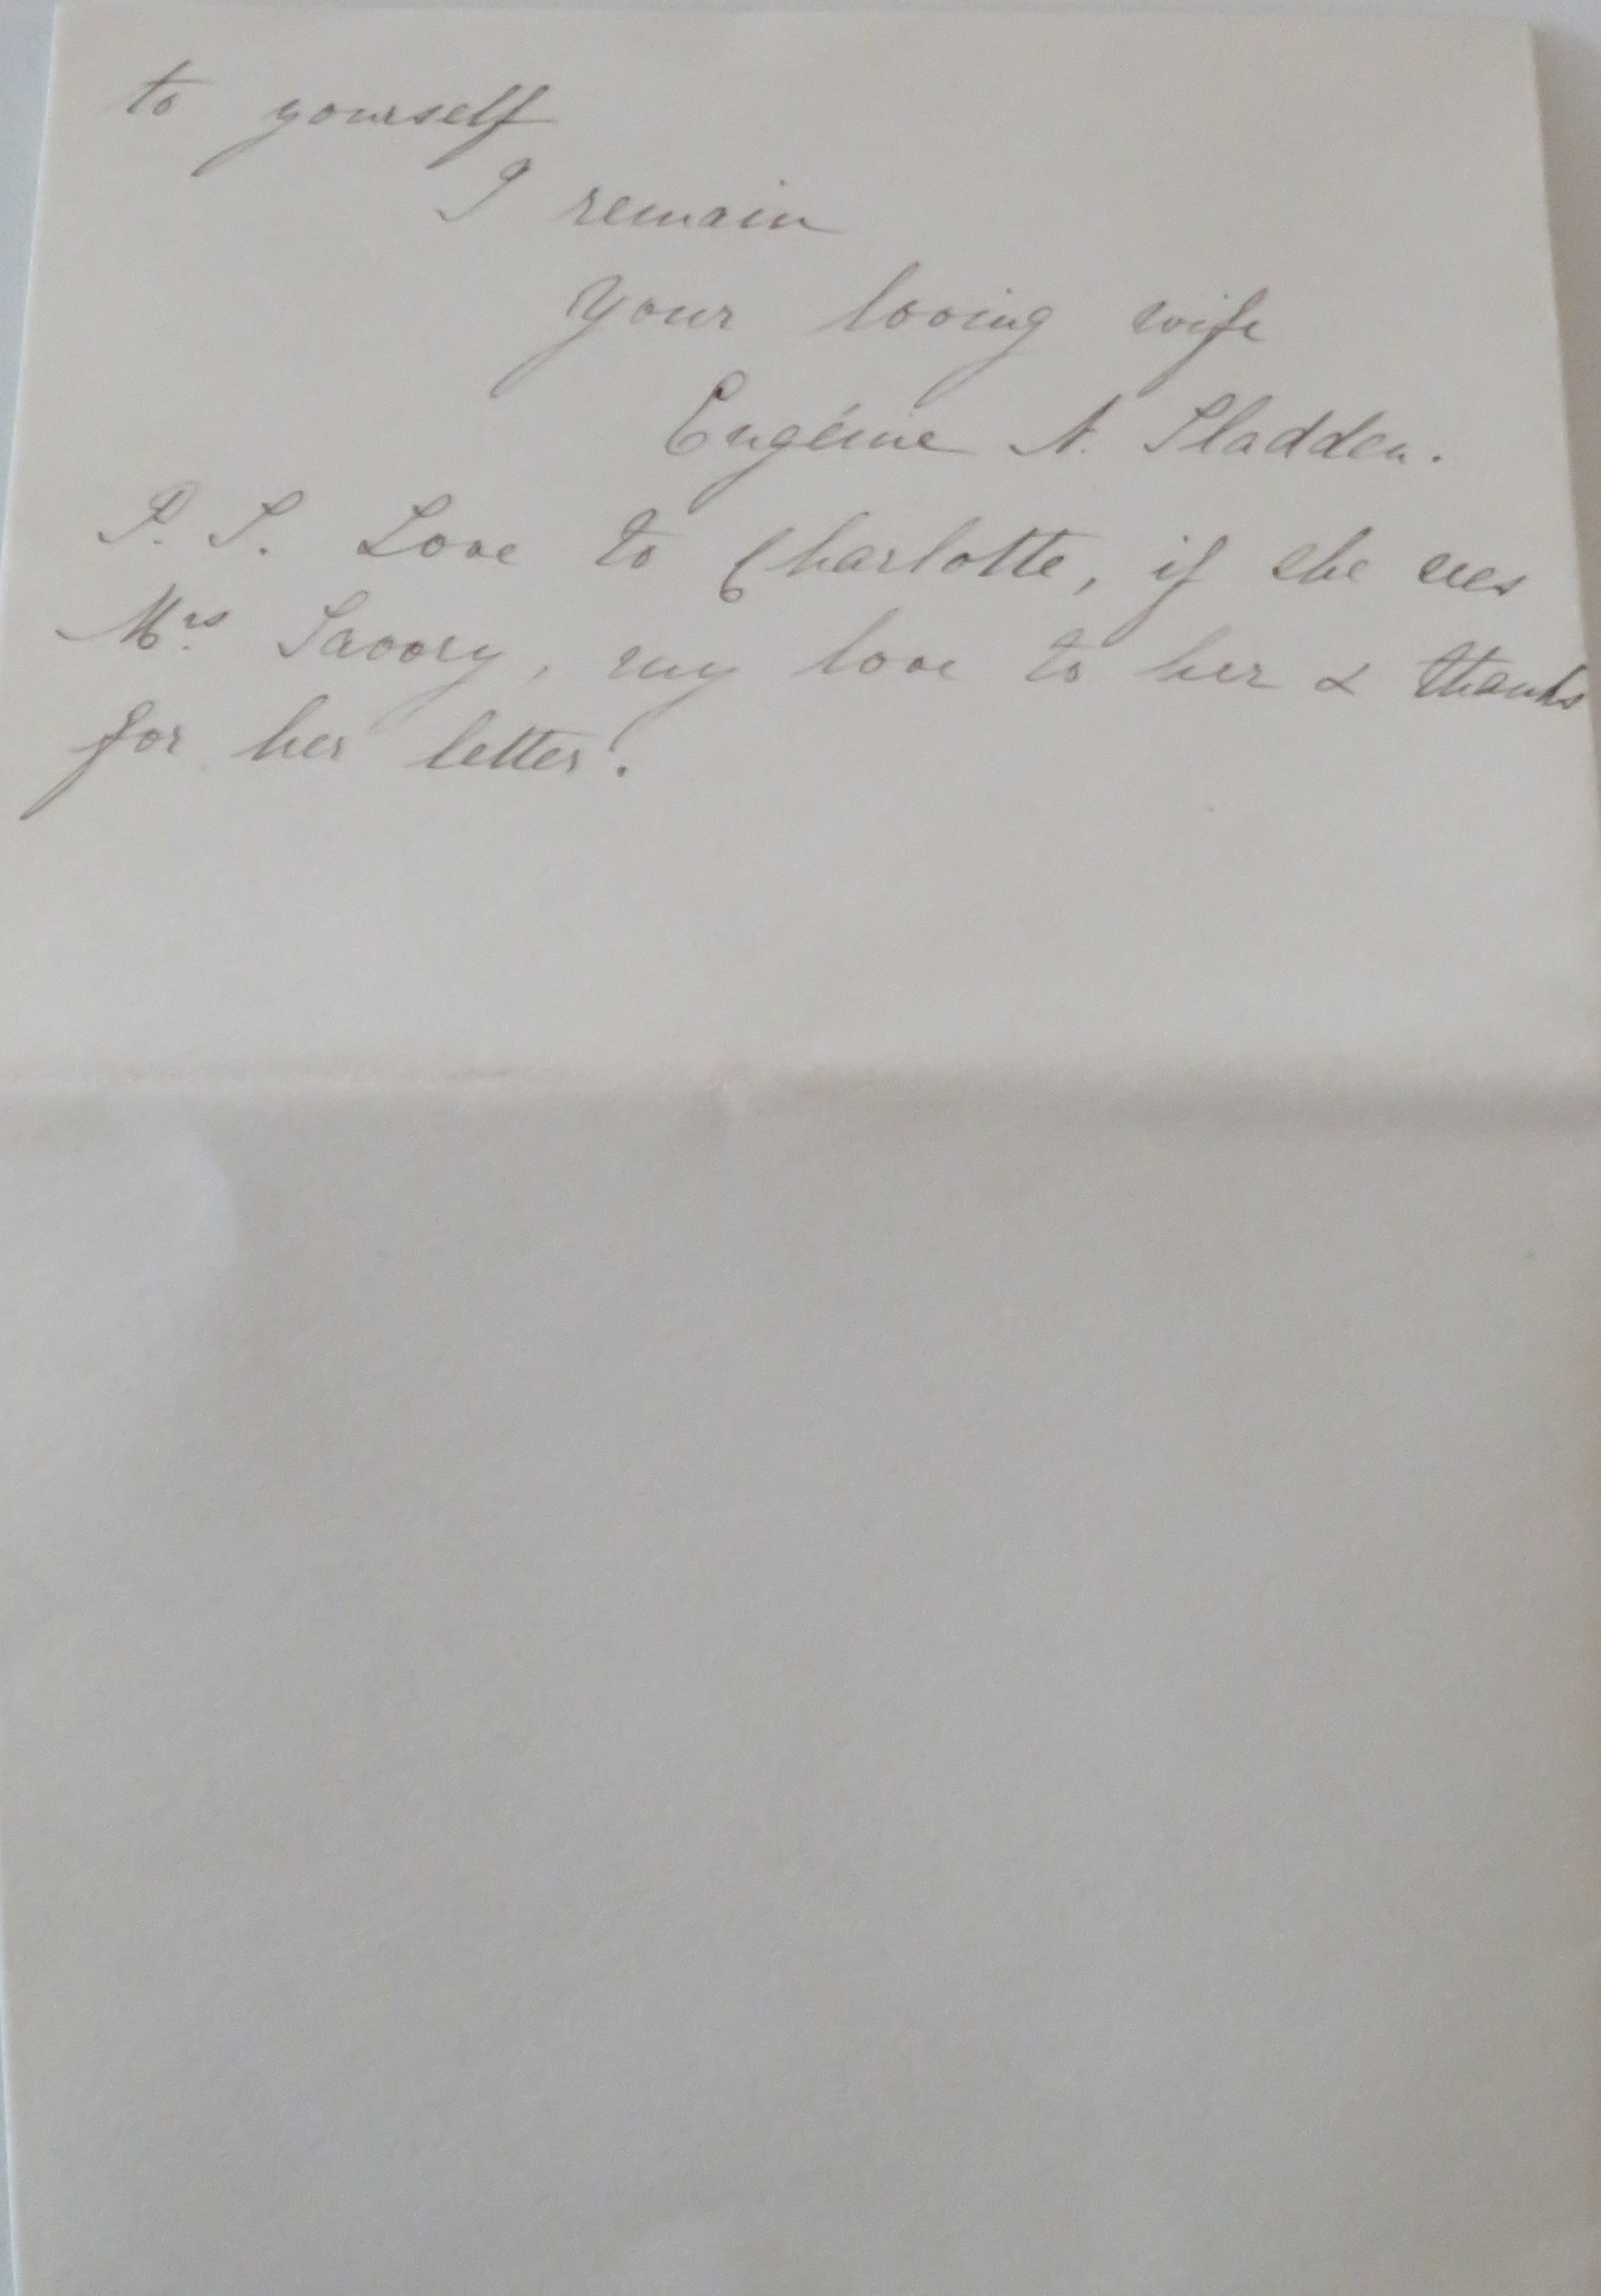 to yourself
I remain
Your loving wife
Eugénie N. Sladden.
P. S. Love to Charlotte, if she sees
Mrs. Savory, my love to her & thanks
for her letter.